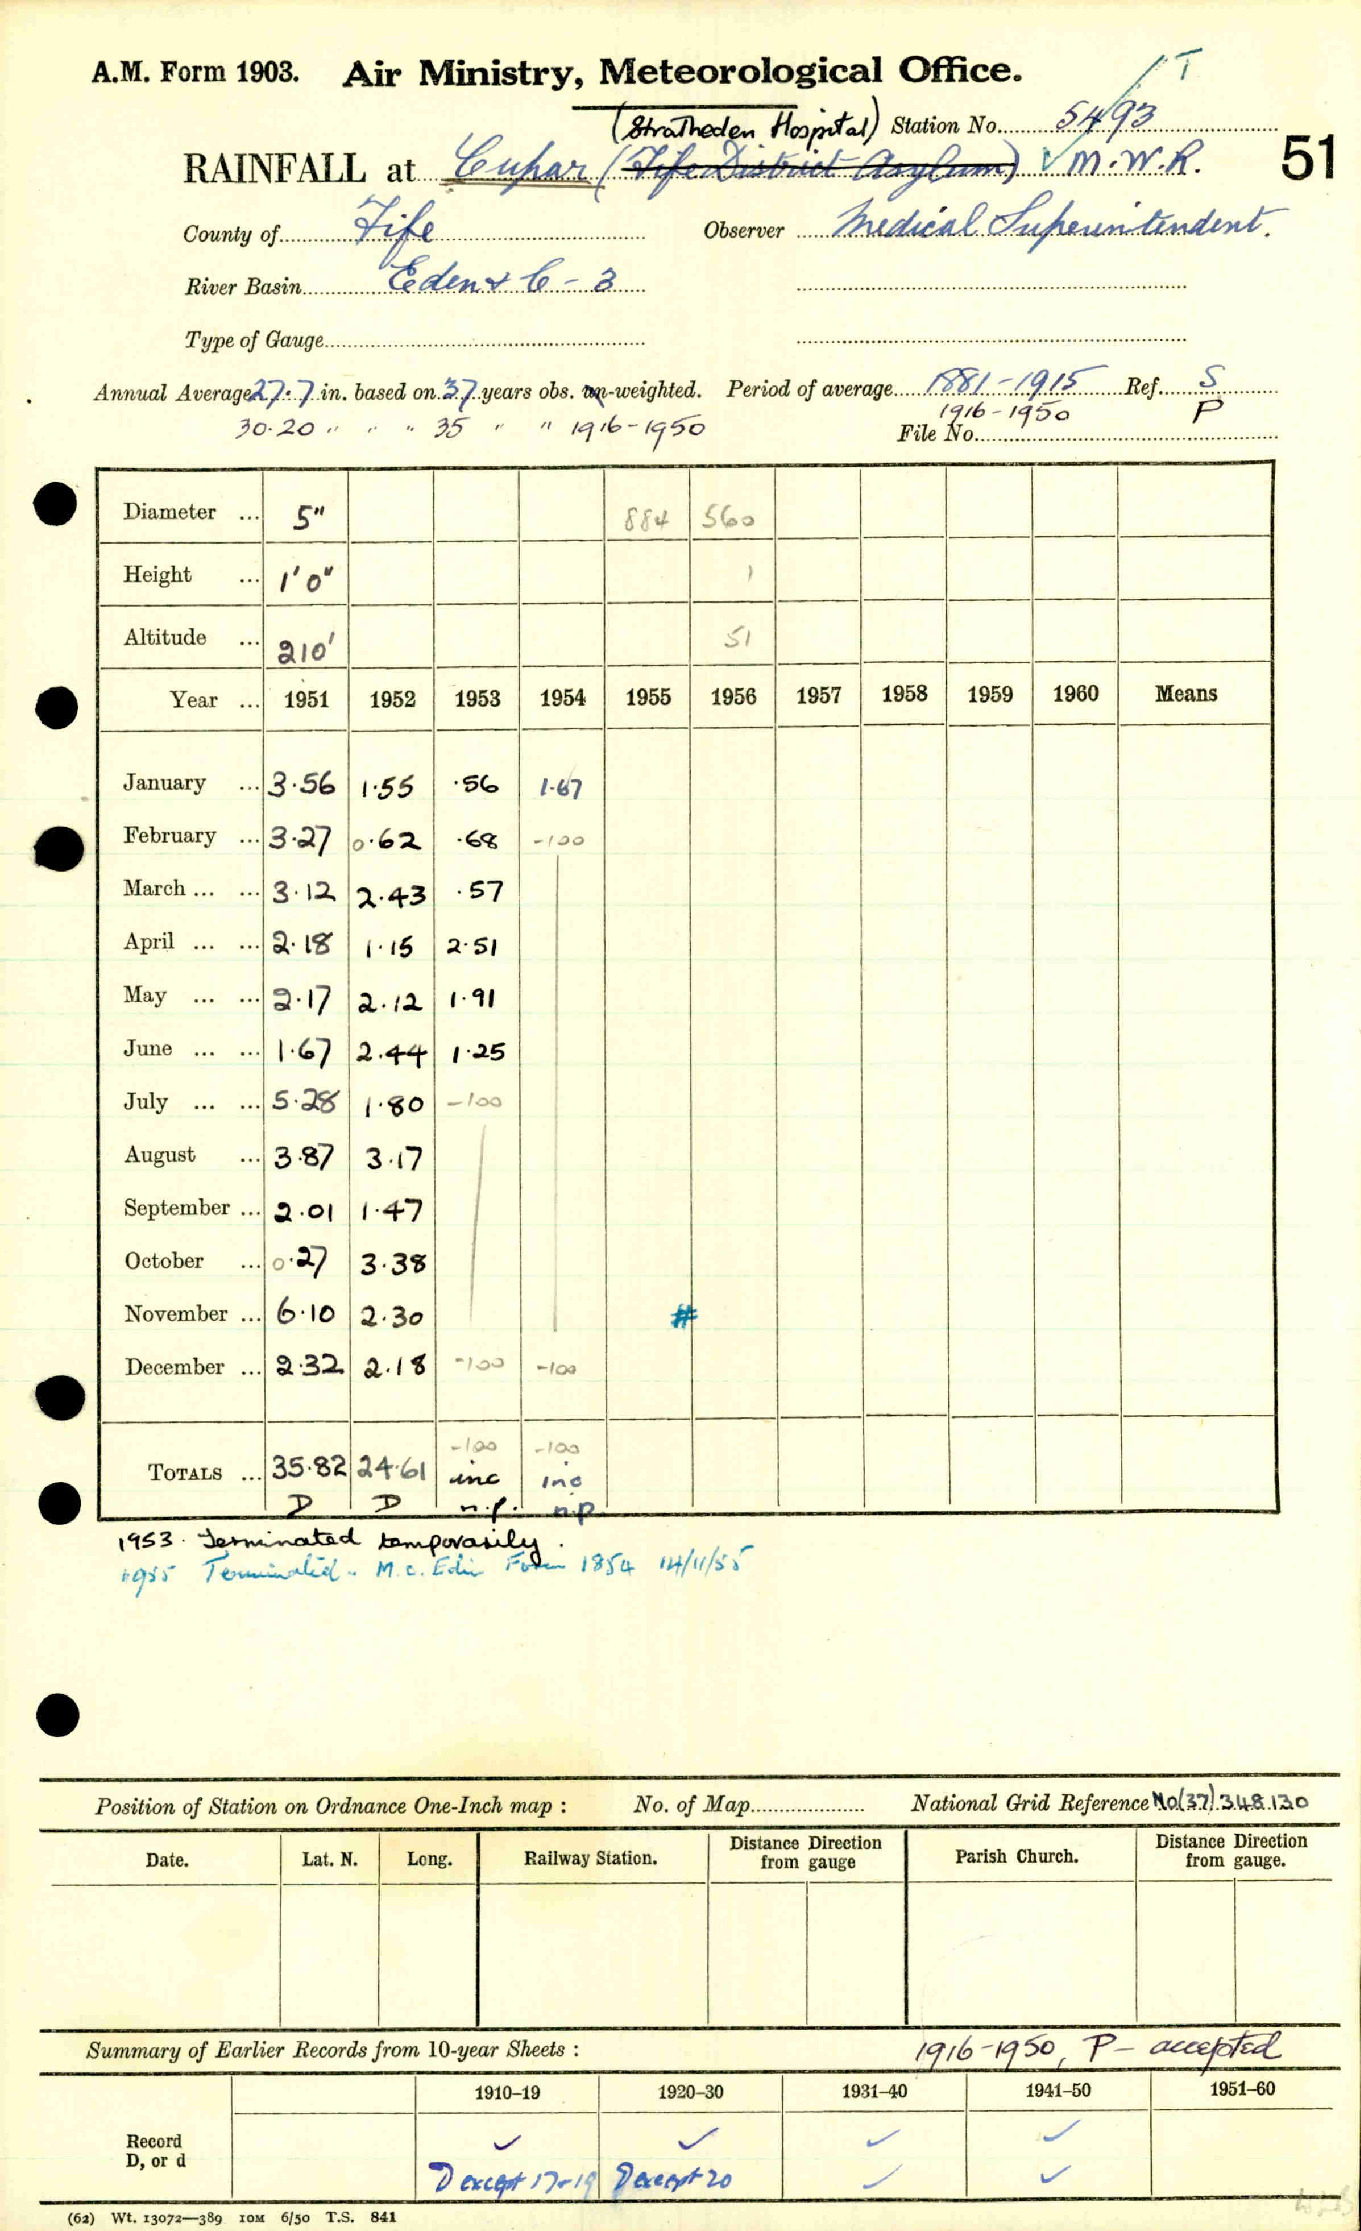 A.M. Form 1903. Air Ministry, Meteorological Office.
T
(Stratheden Hospital) Station No. 5493
RAINFALL at Cupar (Fife District Asylum) M.W.R. 51
County of Fife Observer Medical Superintendent.
River Basin Eden & C - 3
Type of Gauge
Annual Average 27.7 in. based on 37 years obs. un-weighted. Period of average 1881-1915 Ref. S
30.20 " " " 35 " " 1916-1950 1916-1950 P
File No.
Diameter ... 5" 884 560
Height ... 1'0" 1
Altitude ... 210' 51
Year ... 1951 1952 1953 1954 1955 1956 1957 1958 1959 1960 Means
January ... 3.56 1.55 .56 1.67
February ... 3.27 0.62 .68 -100
March ... ... 3.12 2.43 .57
April ... ... 2.18 1.15 2.51
May ... ... 2.17 2.12 1.91
June ... ... 1.67 2.44 1.25
July ... ... 5.28 1.80 -100
August ... 3.87 3.17
September ... 2.01 1.47
October ... 0.27 3.38
November ... 6.10 2.30 #
December ... 2.32 2.18 -100 -100
-100 -100
TOTALS ... 35.82 24.61 inc inc
D D n.p. n.p.
1953. Terminated temporarily.
1955 Terminated. M.C. Edin Form 1854 14/11/55
Position of Station on Ordnance One-Inch map : No. of Map National Grid Reference NO(37) 348.130
Date. Lat. N. Long. Railway Station. Distance Direction from gauge Parish Church. Distance Direction from gauge.
Summary of Earlier Records from 10-year Sheets : 1916-1950, P - accepted
1910-19 1920-30 1931-40 1941-50 1951-60
Record ✓ ✓ ✓ ✓
D, or d D except 17-19 D except 20 ✓ ✓
(62) Wt. 13072—389 10M 6/50 T.S. 841